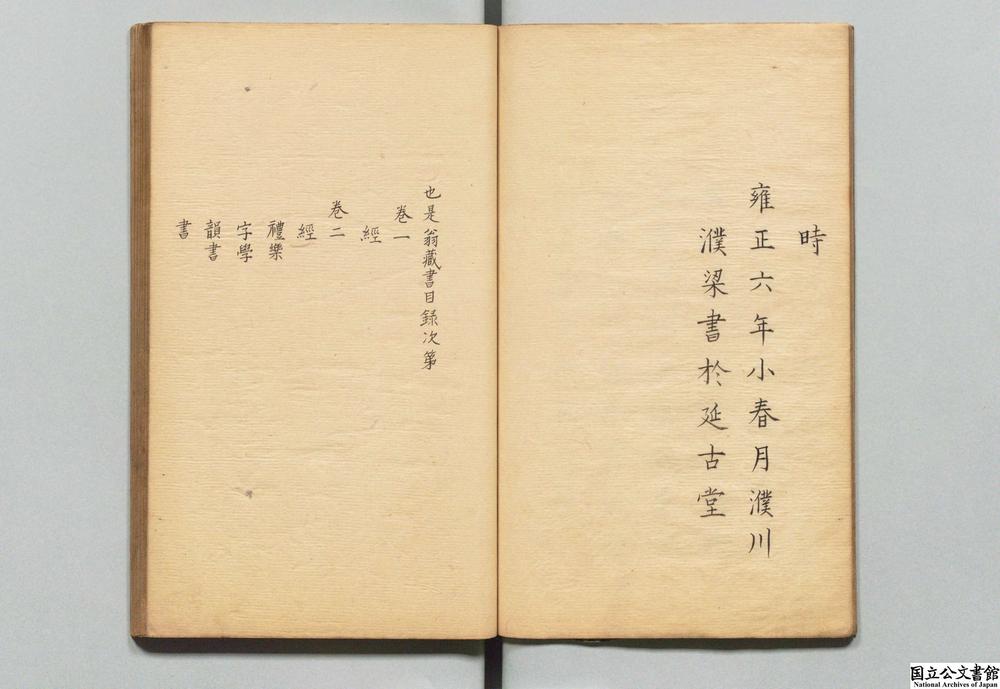 時
雍正六年小春月濮川
濮梁書於延古堂
也是翁藏書目録次第
卷一
經
卷二
經
禮樂
字學
韻書
書
国立公文書館
National Archives of Japan